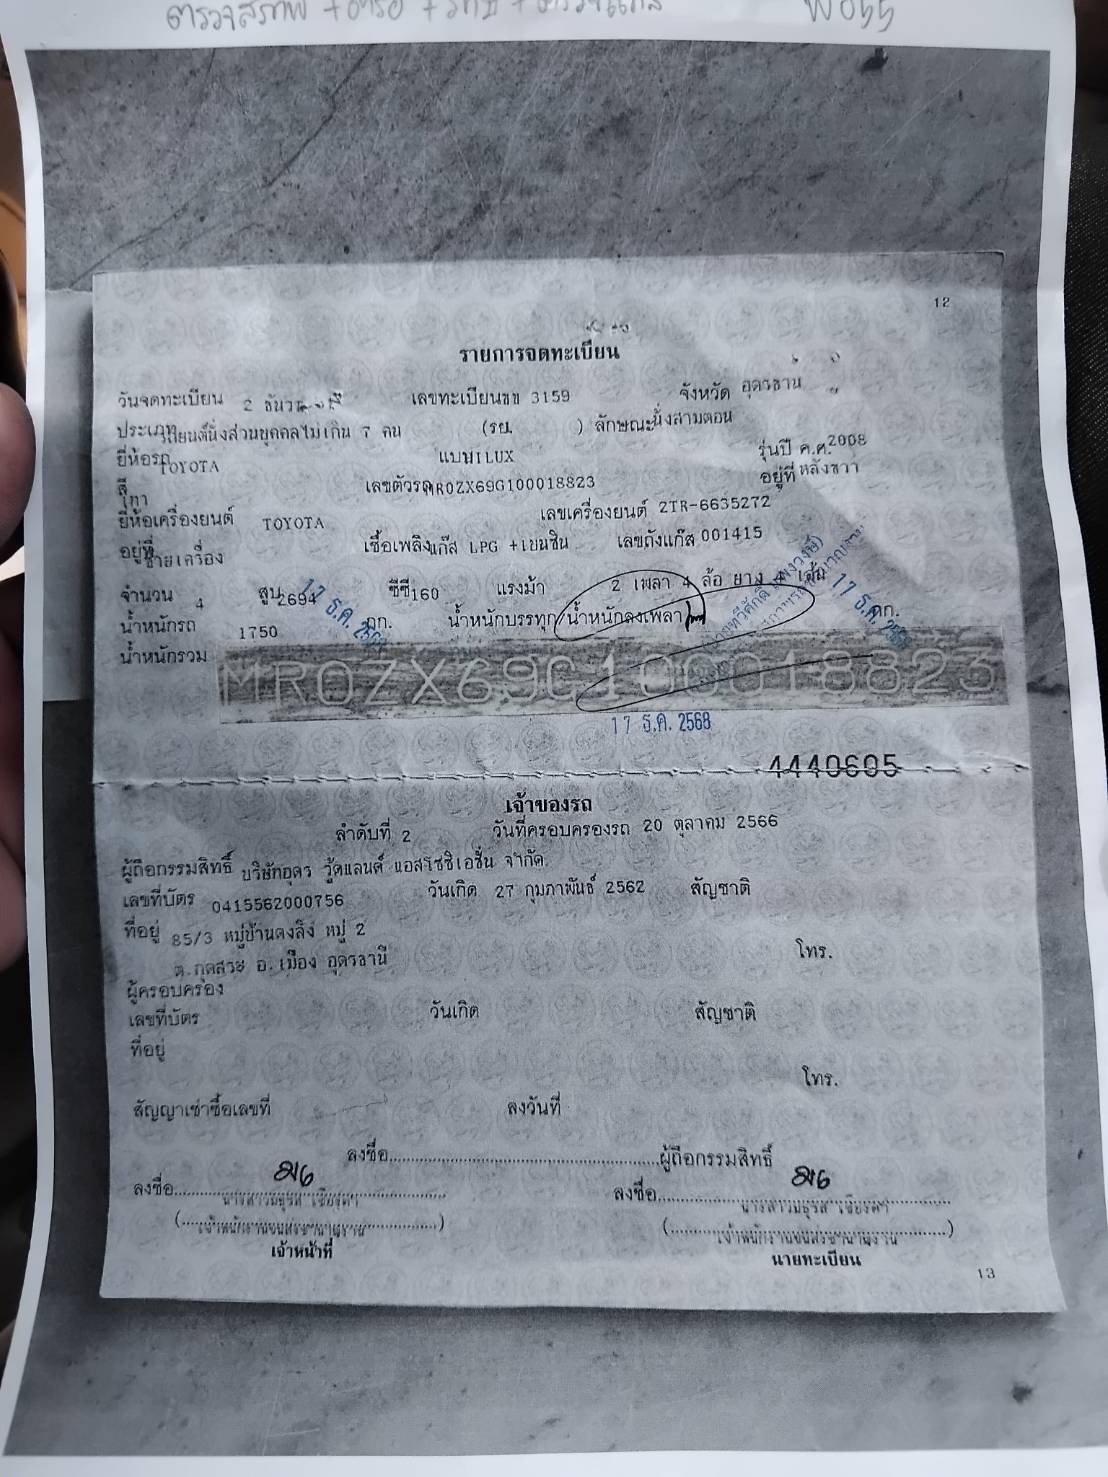 ตรวจสภาพ + +
W055
12
รายการจดทะเบียน
วันจดทะเบียน 2 เลขทะเบียน ขข 3159 จังหวัด อุดรธานี
ประเภท รถยนต์นั่งส่วนบุคคลไม่เกิน 7 คน (รย. ) ลักษณะ นั่งสามตอน
ยี่ห้อรถ TOYOTA แบบ HILUX รุ่นปี ค.ศ. 2008
สี เทา เลขตัวรถ MR0ZX69G100018823 อยู่ที่ หลังขวา
ยี่ห้อเครื่องยนต์ TOYOTA เลขเครื่องยนต์ 2TR-6635272
อยู่ที่ ซ้ายเครื่อง เชื้อเพลิง แก๊ส LPG +เบนซิน เลขถังแก๊ส 001415
จำนวน 4 สูบ 2694 ซีซี 160 แรงม้า 2 เพลา 4 ล้อ ยาง 4 เส้น
น้ำหนักรถ 1750 กก. น้ำหนักบรรทุก/น้ำหนักลงเพลา กก.
น้ำหนักรวม
17 ธ.ค. 2568
17 ธ.ค. 2568
MR0ZX69G100018823
17 ธ.ค. 2568
4440605
เจ้าของรถ
ลำดับที่ 2 วันที่ครอบครองรถ 20 ตุลาคม 2566
ผู้ถือกรรมสิทธิ์ บริษัทอุดร วู้ดแลนด์ แอสโซซิเอชั่น จำกัด
เลขที่บัตร 0415562000756 วันเกิด 27 กุมภาพันธ์ 2562 สัญชาติ
ที่อยู่ 85/3 หมู่บ้านดงลิง หมู่ 2
ต.กุดสระ อ.เมือง อุดรธานี โทร.
ผู้ครอบครอง
เลขที่บัตร วันเกิด สัญชาติ
ที่อยู่
โทร.
สัญญาเช่าซื้อเลขที่ ลงวันที่
ลงชื่อ ผู้ถือกรรมสิทธิ์
ลงชื่อ ลงชื่อ
เจ้าหน้าที่ นายทะเบียน
13